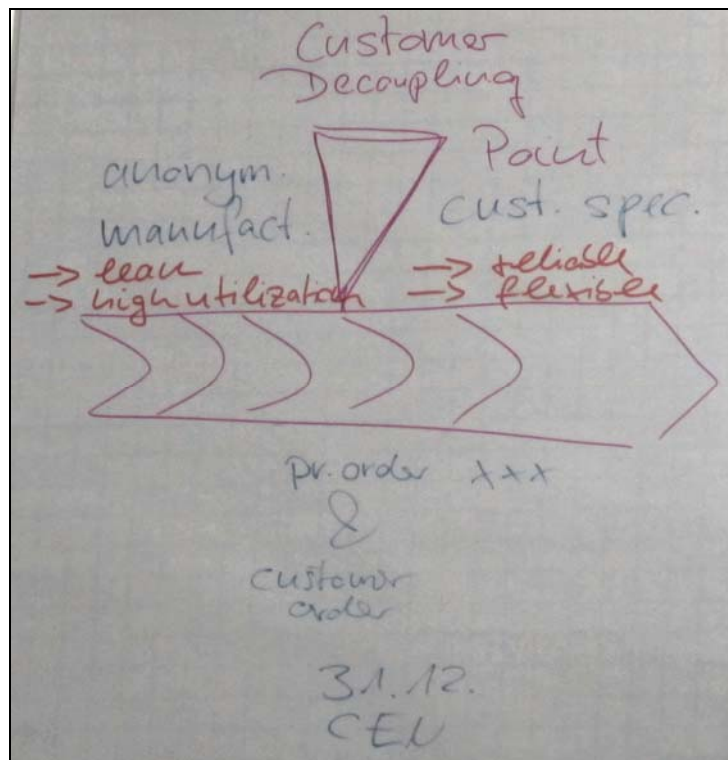 Customer
Decoupling
Point
anonym.
manufact.
cust. spec.
→ lean
→ high utilization
→ reliable
→ flexible
pr. order xxx
&
customer
order
31.12.
CEN